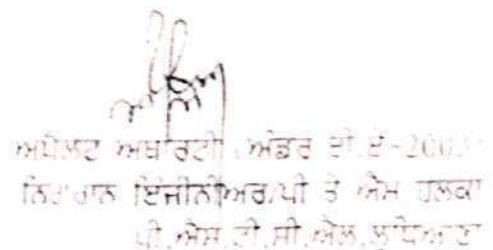 ਅਪੀਲਟ ਅਥਾਰਟੀ ਅੰਡਰ ਈ.ਏ-2003
ਨਿਗਰਾਨ ਇੰਜੀਨੀਅਰ,ਪੀ ਤੇ ਐਮ ਹਲਕਾ
ਪੀ.ਐਸ.ਟੀ.ਸੀ.ਐਲ.ਲੁਧਿਆਣਾ